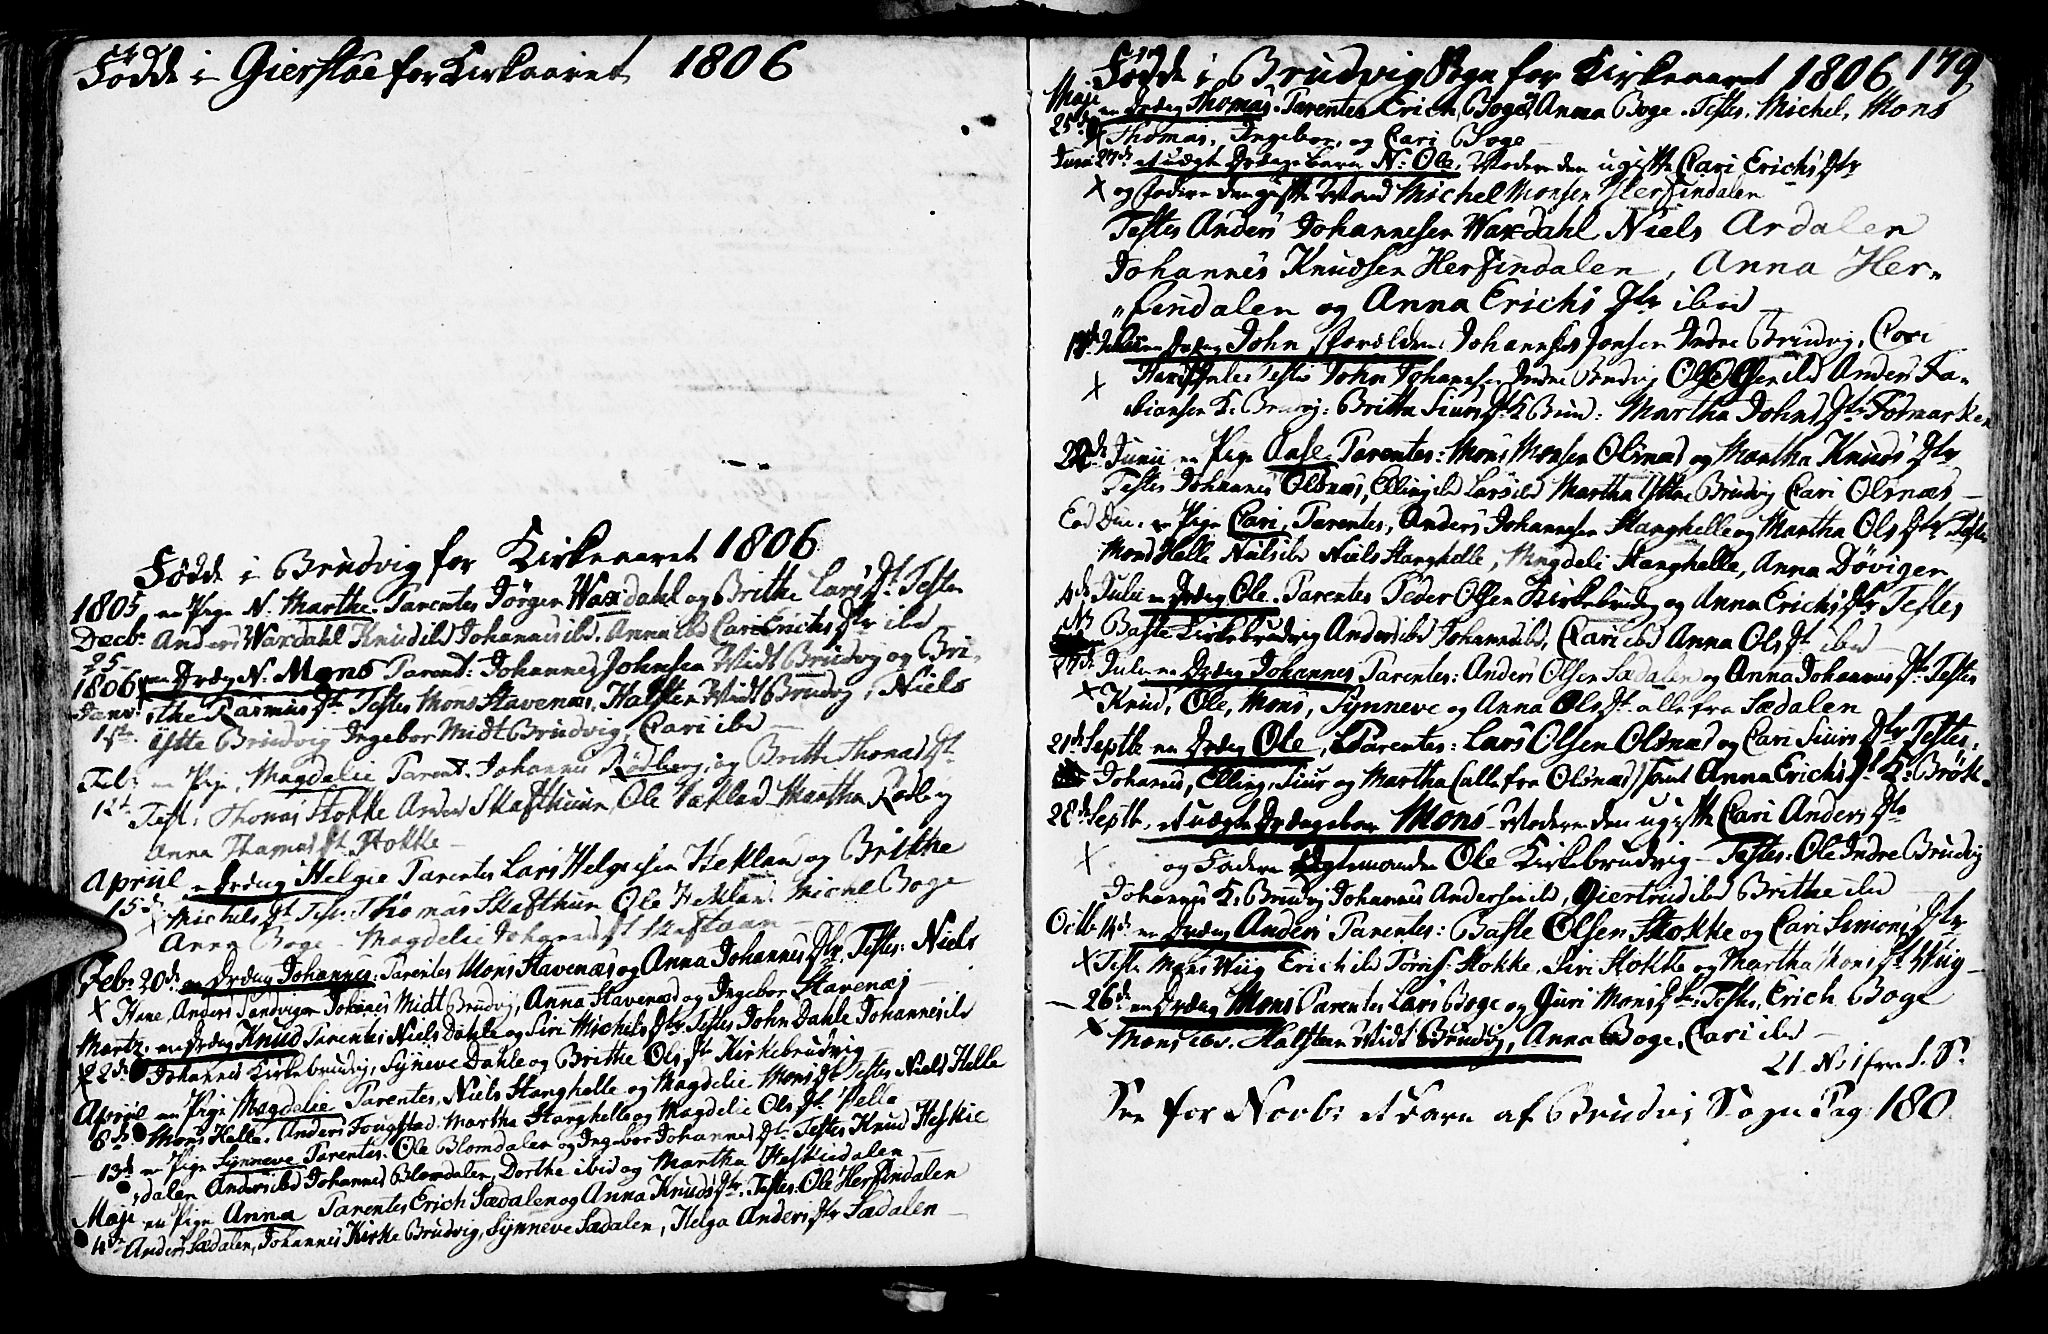 Fødde i Gierstad for Kirkeaaret 1806
Fødde i Brudvig for Kirkeaaret 1806
1805 en Pige N. Marthe. Parentes Jørgen Waxdahl og Brithe Lars Dtr Testes
Decb: Anders Waxdahl Knud ibd Johannes ibd. Anna ibd Cari Erichs Dtr ibd
25
1806 en Dreng N. Mons Parent: Johannes Johnsen Midt Brudvig og Bri-
Janv: the Rasmus Dtr Testes Mons Stavenæs, Halsten Midt Brudvig, Niels
1ste Ystte Brudvig Ingebor Midt Brudvig, Cari ibd
Feb: en Pige, Magdelie Parent. Johannes Rødberg, og Britte Thomas Dtr
Test. Thomas Stokke Anders Skafthuun, Ole Martha Rødberg
Anna Thomas Dtr Stokke
Apriil en Dreng Helgie Parentes Lars Helgesen Heklan og Brithe
15de Michels Dtr Test. Thomas Skafthun Ole Heklan Michel Boge
Anna Boge - Magdelie Johannes Dtr
Febr 20de en Dreng Johannes: Parentes Mons Stavenæs og Anna Johannes Dtr. Testes: Niels
X Hane Anders Sandvigen Johanes Midt Brudvig, Anna Stavenæs og Ingebor Stavenæs
Martz. en Dreng Knud Parentes Niels Dahle og Siri Michels Dtr Testes John Dahle Johannes ibd
22de Johannes Kirkebrudvig, Synneve Dahle og Brithe Ols Dtr Kirkebrudvig
Apriil en Pige Magdelie Parentes, Niels Stanghelle og Magdelie Mons Dtr Testes Niels Helle
6de Mons Helle. Anders Fougstad Martha Stanghelle og Magdelie Ols Dtr Helle
13de en Pige Synneve Parentes: Ole Blomdalen og Ingebor Johannes Dtr Testes Knud Heskie
dalen Anders ibd Johannes Blomdalen, Dorthe ibid og Martha Heskiedalen
Maji en Pige Anna Parentes Erich Sædalen og Anna Knuds Dtr. Testes: Ole Herfindalen
4de Anders Sædalen, Johannes Kirke Brudvig, Synneve Sædalen, Helga Anders Dtr Sædalen
Fødde i Brudvig Sogn for Kirkeaaret 1806 179
Maji en Dreng Thomas. Parentes Erich Boge, Anna Boge. Testes. Michel, Mons
25de Thomas, Ingebor, og Cari Boge
Juni 27de et uægte Drengebarn N: Ole, Moderen den ugifte Cari Erichs Dtr
X og Faderen den gifte Mand Michel Monsen Herfindalen
Testes Anders Johannesen Waxdahl Niels Ardalen
Johannes Knudsen Herfindalen, Anna Her-
findalen og Anna Erichs Dtr ibid
en Dreng John, Forældre: Johannes Jonsen Indre Brudvig, Cari
X Testes John Johannesen Indre Brudvig Ole Olsen ibd Anders Fa-
biansen K. Brudvig: Britta Siurs Dtr K Brud: Martha Johns Dtr Fosmarken
22de Junii en Pige Aase Parentes: Mons Monsen Olsnæs og Martha Knuds Dtr
Testes Johannes Olsnæs, Elling ibd Lars ibd Martha Ystte Brudvig Cari Olsnæs
Eod Die. en Pige Cari, Parentes, Anders Johannesen Stanghelle og Martha Ols Dtr Testes
Mons Helle Niels ibd Niels Stanghelle, Magdeli Stanghelle, Anna Døvigen
Julii en Dreng Ole. Parentes Peder Olsen Kirkebrudvig og Anna Erichs Dtr Testes
Baste Kirkebrudvig Anders ibd Johannes ibd, Cari ibd Anna Ols Dtr ibd
27de Julii en Dreng Johannes Parentes: Anders Olsen Sædalen og Anna Johannes Dtr Testes
X Knud, Ole, Mons, Synneve og Anna Ols Dtr alle fra Sædalen
21de Septbr en Dreng Ole, Parentes: Lars Olsen Olsnæs og Cari Siurs Dtr Testes,
Johannes, Elling, Siur og Martha (alle fra Olsnæs) samt Anna Erichs Dtr K: Brøk.
28de Septb, et uægte Drengebarn Mons - Moderen den ugifte Cari Anders Dtr
X og Faderen Ole Kirkebrudvig - Testes: Ole Indre Brudvig
Johannes K: Brudvig Johannes Andersen ibd, Giertrud ibd Brithe ibd
Octb 14de en Dreng Anders Parentes: Baste Olsen Stokke og Cari Simons Dtr
X Testes Mons Wiig Erich ibd Tørris Stokke. Siri Stokke og Martha Mons Dtr Wiig
26de en Dreng Mons Parentes Lars Boge og Guri Mons Dtr: Testes, Erich Boge
X Mons ibd. Halsten Midt Brudvig, Anna Boge, Cari ibd
21 N: 1 fra S. S:
See for Novb: et Barn af Brudvig Sogn Pag: 180